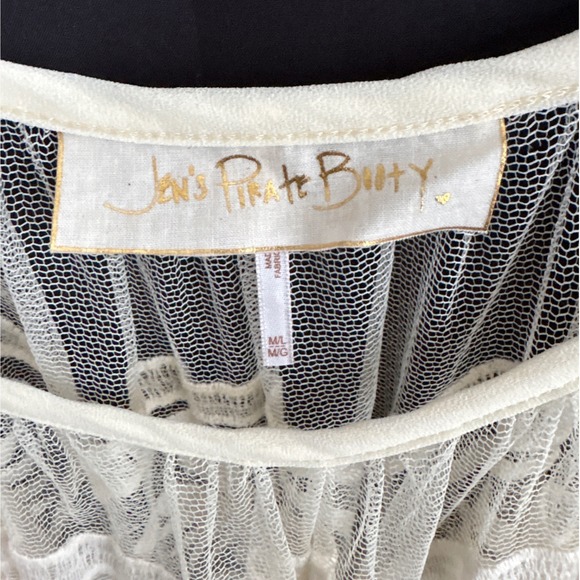 JEN'S PIRATE BOOTY
MAD
FABRIC
M/L
M/G